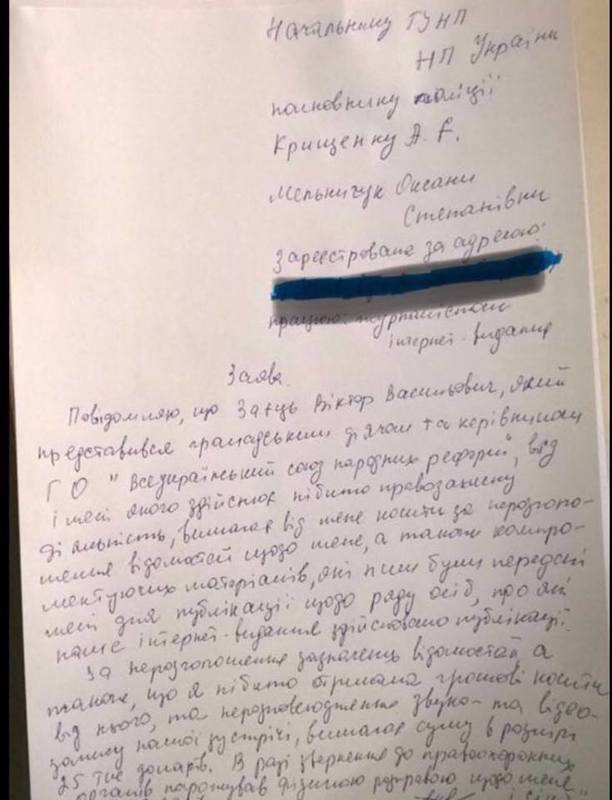 Начальнику ГУНП
НП України
полковнику поліції
Крищенку А. Є.
Мельничук Оксани
Степанівни
Зареєстрована за адресою:
працюю: журналістом
інтернет-видання
Заява.
Повідомляю, що Заєць Віктор Васильович, який
представився громадським діячем та керівником
ГО "Всеукраїнський союз народних реформ", від
імені якого здійснює нібито правозахисну
діяльність, вимагає від мене кошти за нерозголо-
шення відомостей щодо мене, а також компро-
метуючих матеріалів, які ним були передані
мені для публікації щодо ряду осіб, про які
наше інтернет-видання здійснювало публікації.
За нерозголошення зазначених відомостей, а
також, що я нібито отримала грошові кошти
від нього, та нерозповсюдження звуко- та відео-
запису нашої зустрічі, вимагає суму в розмірі
25 тис доларів. В разі звернення до правоохоронних
органів погрожував фізичною розправою щодо мене